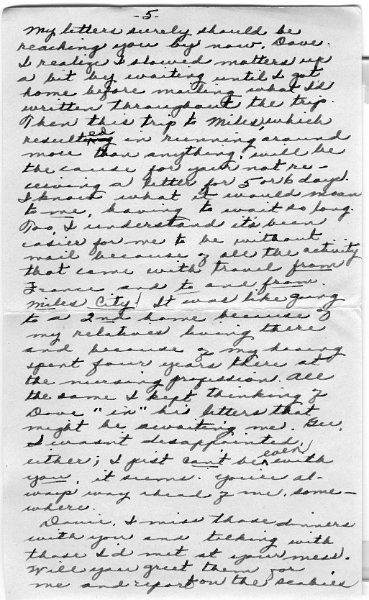 -5-
My letters surely should be
reaching you by now, Dave.
I realize I slowed matters up
a bit by waiting until I got
home before mailing what I'd
written throughout the trip.
Then this trip to Miles, which
resulted in running around
more than anything, will be
the cause for your not re-
ceiving a letter for 5 or 6 days!
I know what it would mean
to me, having to wait so long.
Too, I understand it's been
easier for me to be without
mail because of all the activity
that came with travel from
France and to and from
Miles City! It was like going
to a 2nd home because of
my relatives living there
and because of my having
spent four years there at
the nursing profession. All
the same I kept thinking of
Dave "in" his letters that
might be awaiting me. Gee,
I wasn't disappointed,
either; I just can't be even with
you, it seems. You're al-
ways way ahead of me, some-
where.
Davie, I miss those dinners
with you and talking with
those I'd met at your mess.
Will you greet them for
me and report on the scabies